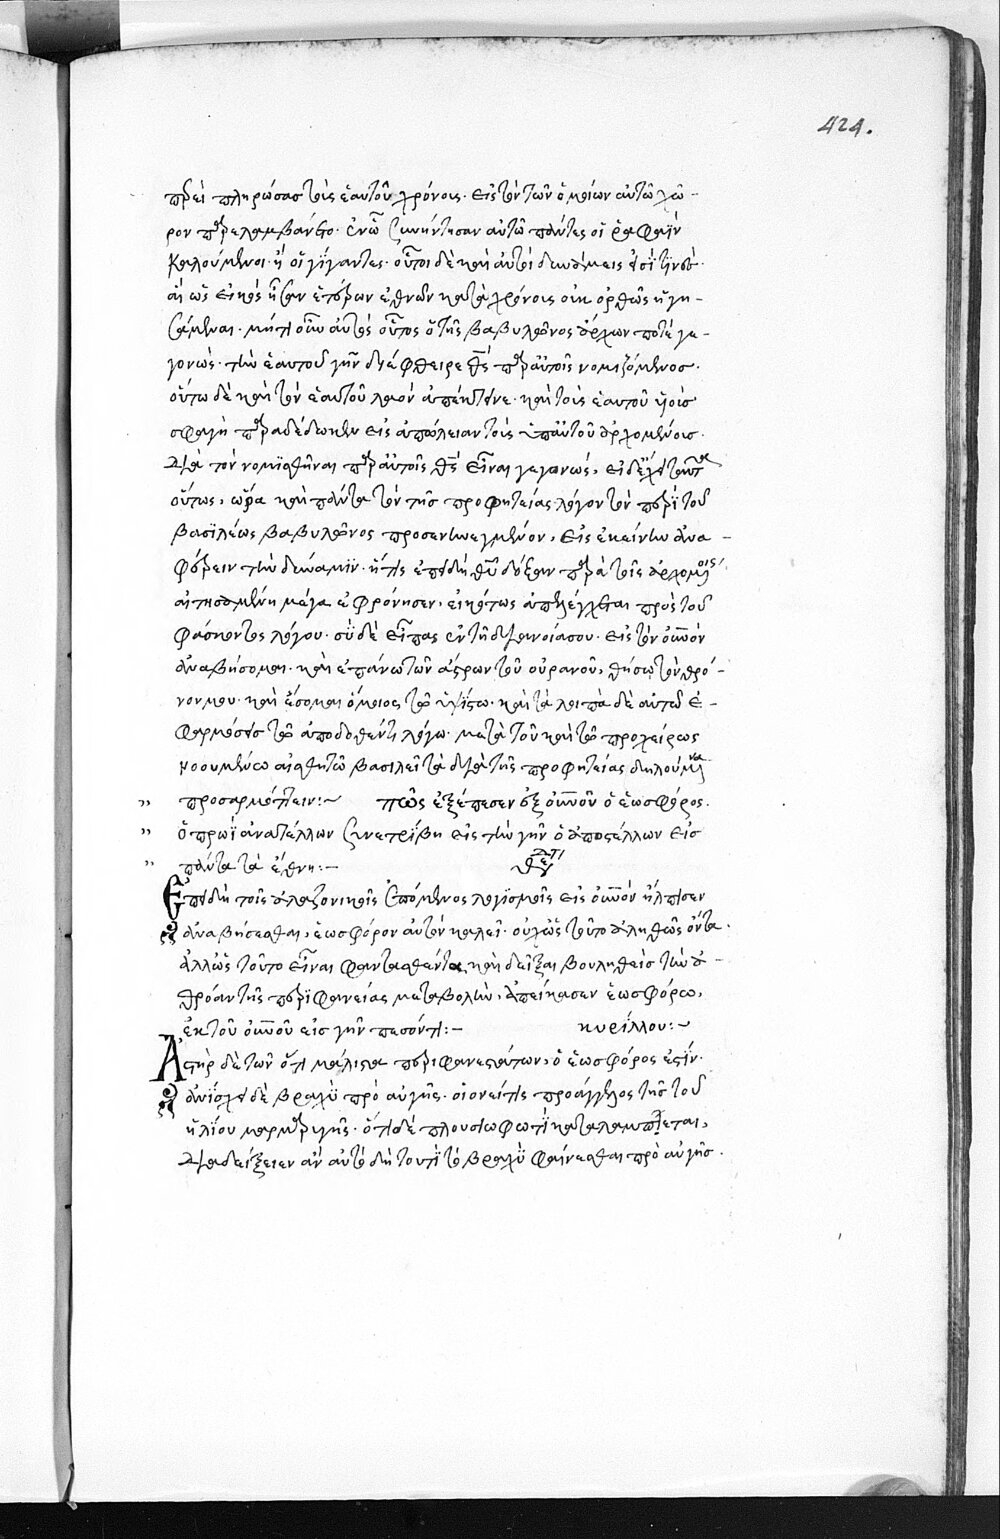 424.
πρὶ πληρώσας τοὺς ἑαυτοῦ χρόνους. εἰς τὸν τῶν ὁμοίων αὐτῶ χῶ-
ρον παρελαμβάνετο. ἐν ὧ συνήντησαν αὐτῶ πάντες οἱ ῥαφαῒν
καλούμενοι. ἢ οἱ γίγαντες. οὗτοι δὲ καὶ αὐτοὶ δυνάμεις εἰσί τινές.
αἳ ὡς εἰκὸς ἦσαν ἑτέρων ἐθνῶν κατὰ χρόνους οὐκ ὀρθῶς ἡγη-
σάμεναι. μήτι οὖν αὐτὸς οὗτος ὁ τῆς βαβυλῶνος ἄρχων ποτὲ γε-
γονὼς. τὴν ἑαυτοῦ γῆν διέφθειρε θς παρ' αὐτοῖς νομιζόμενος.
οὕτω δὲ καὶ τὸν ἑαυτοῦ λαὸν ἀπέκτεινε. καὶ τοὺς ἑαυτοῦ υἱοὺς
σφαγῆ παραδέδωκεν εἰς ἀπώλειαν τοῖς ὑπ' αὐτοῦ ἀρχομένοις.
διὰ τὸν νομισθῆναι παρ' αὐτοῖς θς εἶναι γεγονώς. εἰ δὲ ἔχει ταῦτα
οὕτως, ὥρα καὶ πάντα τὸν τῆς προφητείας λόγον τὸν περὶ τοῦ
βασιλέως βαβυλῶνος προσενηνεγμένον, εἰς ἐκείνην ἀνα-
φέρειν τὴν δύναμιν. ἥτις ἐπειδὴ θυ δόξαν παρὰ τοῖς ἀρχομένοις
αἰτησαμένη μέγα ἐφρόνησεν, εἰκότως ἀπελέγχεται πρὸς τοῦ
φάσκοντος λόγου. σὺ δὲ εἶπας ἐν τῆ διανοία σου. εἰς τὸν οὐνὸν
ἀναβήσομαι. καὶ ἐπάνω τῶν ἄστρων τοῦ οὐρανοῦ, θήσω τὸν θρό-
νον μου. καὶ ἔσομαι ὅμοιος τῶ ὑψίστω. καὶ τὰ λοιπὰ δὲ αὐτοῦ ἐ-
φαρμόσεις τῶ ἀποδοθέντι λόγω. μετὰ τοῦ καὶ τῶ προχείρως
νοουμένω αἰσθητῶ βασιλεῖ τὰ διὰ τῆς προφητείας δηλούμενα
προσαρμόττειν:~ πῶς ἐξέπεσεν ἐξ οὐνοῦ ὁ ἑωσφόρος.
ὁ πρωῒ ἀνατέλλων συνετρίβη εἰς τὴν γῆν ὁ ἀποστέλλων εἰς
πάντα τὰ ἔθνη:–
Ἐπειδὴ τοῖς ἀλαζονικοῖς ἑπόμενος λογισμοῖς εἰς οὐνὸν ἤλπισεν
ἀναβήσεσθαι, ἑωσφόρον αὐτὸν καλεῖ. οὐχ ὡς τοῦτο ἀληθῶς ὄντα.
ἀλλ' ὡς τοῦτο εἶναι φαντασθέντα, καὶ δεῖξαι βουληθεὶς τὴν ἀ-
θρόαν τῆς περιφανείας μεταβολὴν, ἀπείκασεν ἑωσφόρω,
ἐκ τοῦ οὐνοῦ εἰς γῆν πεσόντι:– κυρίλλου:~
Ἀστὴρ δὲ τῶν ὅτι μάλιστα περιφανεστάτων, ὁ ἑωσφόρος ἐστίν.
ἀνίσχει δὲ βραχὺ πρὸ αὐγῆς. οἱονεί τις προάγγελος τῆς τοῦ
ἡλίου μαρμαρυγῆς. ὅτι δὲ πλουσίω φωτὶ καταλάμπεται,
διαδείξειεν ἂν αὐτὸ δὴ τουτὶ τὸ βραχὺ φαίνεσθαι πρὸ αὐγῆς.